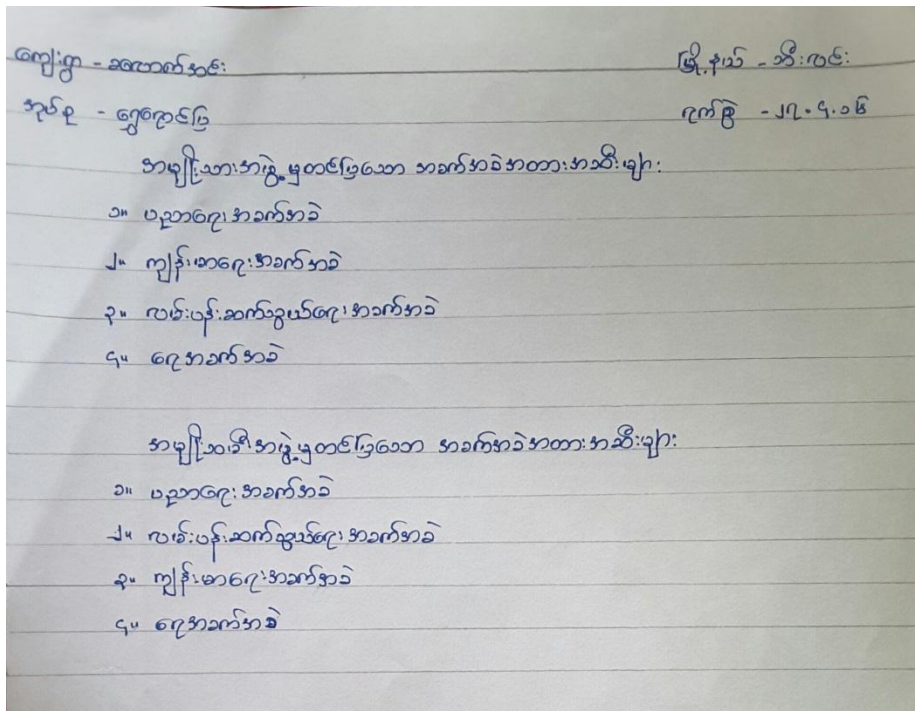 ကျေးရွာ - ခလောက်အင်း မြို့နယ် - ဘီးလင်း
အုပ်စု - ရွှေရောင်ပြ ရက်စွဲ - ၂၇.၄.၁၆
အမျိုးသားအဖွဲ့မှတင်ပြသော အခက်အခဲအတားအဆီးများ
၁။ ပညာရေးအခက်အခဲ
၂။ ကျန်းမာရေးအခက်အခဲ
၃။ လမ်းပန်းဆက်သွယ်ရေးအခက်အခဲ
၄။ ရေအခက်အခဲ
အမျိုးသမီးအဖွဲ့မှတင်ပြသော အခက်အခဲအတားအဆီးများ
၁။ ပညာရေးအခက်အခဲ
၂။ လမ်းပန်းဆက်သွယ်ရေးအခက်အခဲ
၃။ ကျန်းမာရေးအခက်အခဲ
၄။ ရေအခက်အခဲ